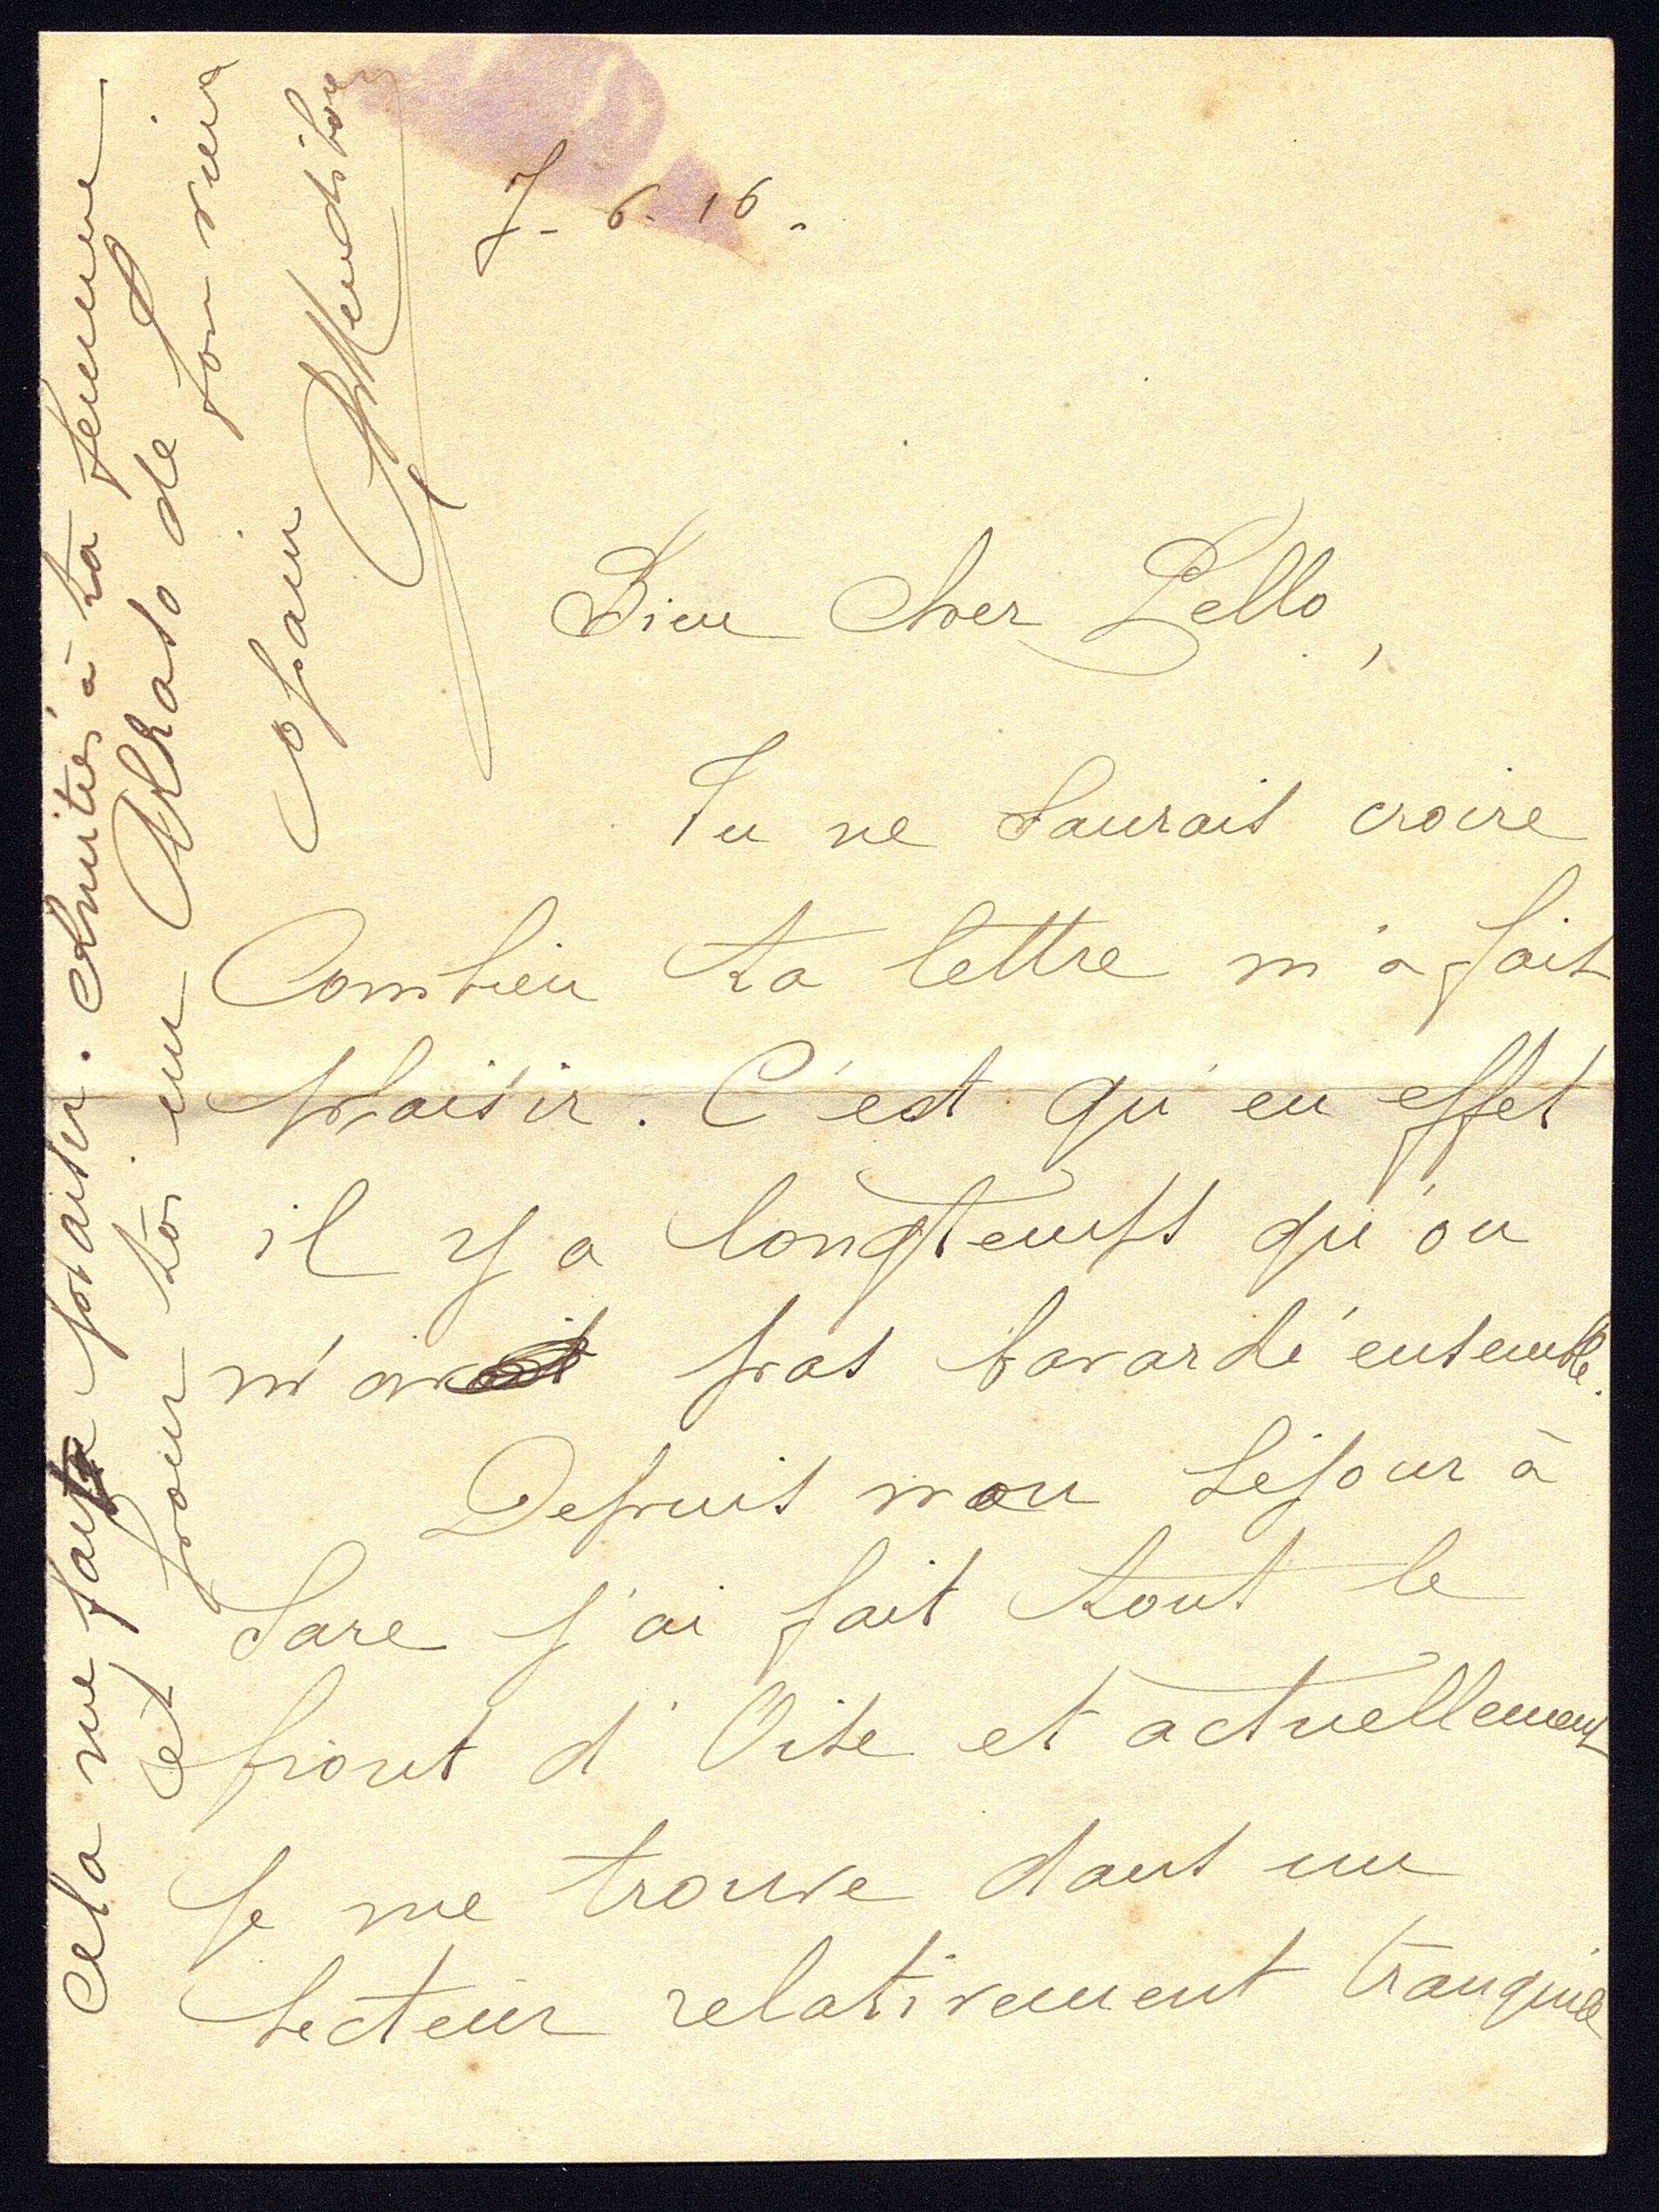 7-6-16.
Bien cher Pello,
Tu ne saurais croire
Combien ta lettre m'a fait
plaisir. C'est qu'en effet
il y a longtemps qu'on
n'a pas bavardé ensemble.
Depuis mon séjour à
Sare j'ai fait tout le
front d'Oise et actuellement
je me trouve dans un
secteur relativement tranquille
cela me fait penser. Amitiés à ta femme
et pour toi un de ton vieu
copain Mendiboure